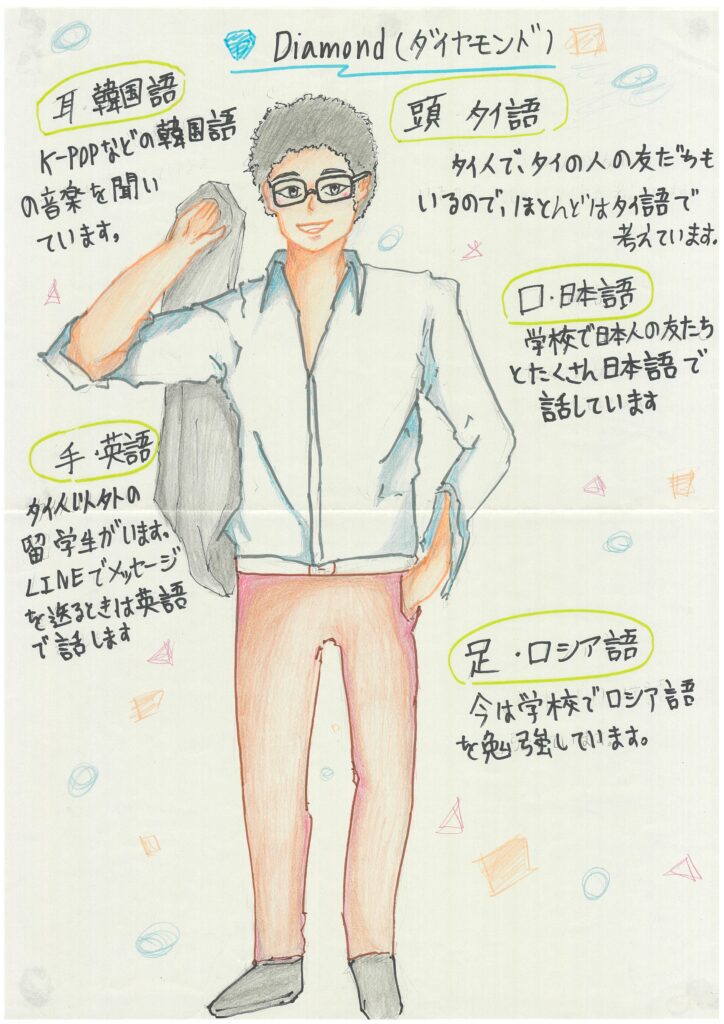 Diamond (ダイヤモンド)
耳・韓国語
K-POPなどの韓国語
の音楽を聞い
ています。
頭 タイ語
タイ人で、タイの人の友だちも
いるので、ほとんどはタイ語で
考えています。
口・日本語
学校で日本人の友たち
とたくさん日本語で
話しています
手・英語
タイ人以外の
留学生がいます。
LINEでメッセージ
を送るときは英語
で話します
足・ロシア語
今は学校でロシア語
を勉強しています。